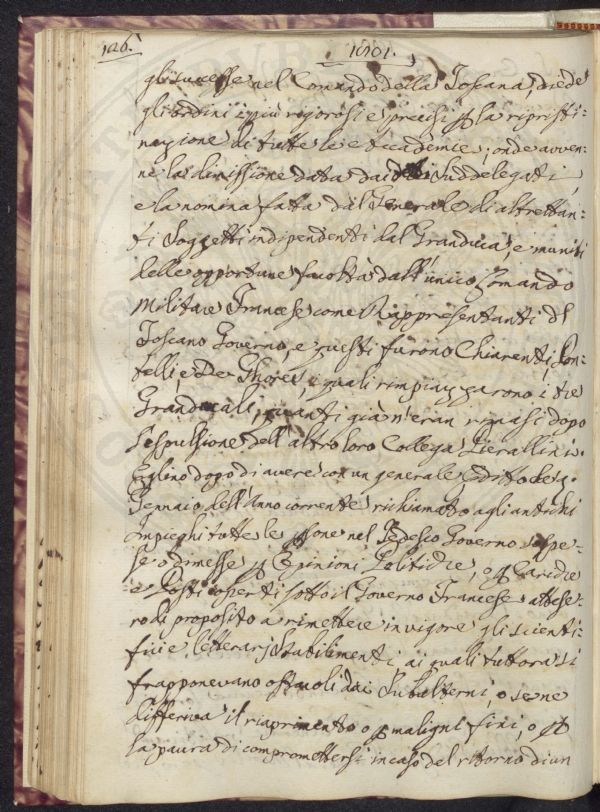 126.
1801.
gli successe nel Comando della Toscana, diede
gli ordini i più rigorosi e precisi p la ripristi:
nazione di tutte le Accademie; onde avven:
ne la dimissione data dai Suddelegati,
e la nomina fatta dal Generale di altrettan:
ti Soggetti indipendenti dal Granduca, e muniti
delle opportune facoltà dall'unico Comando
Militare Francese come Rappresentanti dl
Toscano Governo, e questi furono Chiarenti, Pon:
telli, e De Ghores, i quali rimpiazzarono i tre
Granducali, quanti già n'eran rimasi dopo
l'espulsione dell'altro loro Collega Pierallini.
Eglino dopo di avere con un generale Editto de
Gennaio dell'Anno corrente richiamato agli antichi
Impieghi tutte le psone nel Tedesco Governo sospe:
se o dimesse p Opinioni Politiche, o p Cariche
e Posti coperti sotto il Governo Francese attese:
ro di proposito a rimettere in vigore gli scienti:
fici e letterarj Stabilimenti, ai quali tuttora si
frapponevano ostacoli dai Subalterni, o se ne
differiva il riaprimento o p maligni fini, o p
la paura di compromettersi in caso del ritorno di un